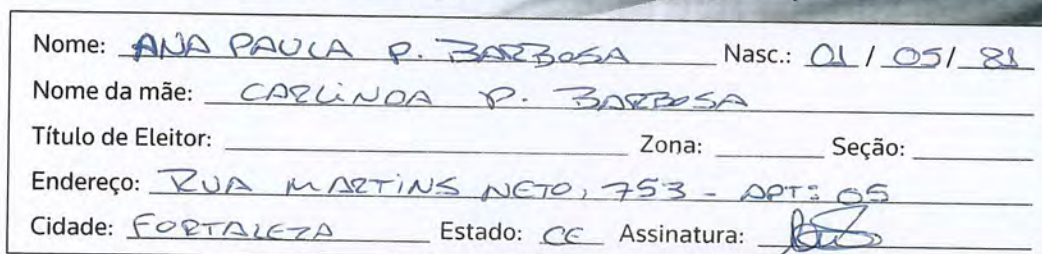 Nome: ANA PAULA P. BARBOSA Nasc.: 01 / 05 / 81
Nome da mãe: CARLINDA P. BARBOSA
Título de Eleitor: Zona: Seção:
Endereço: RUA MARTINS NETO, 753 - APT: 05
Cidade: FORTALEZA Estado: CE Assinatura: